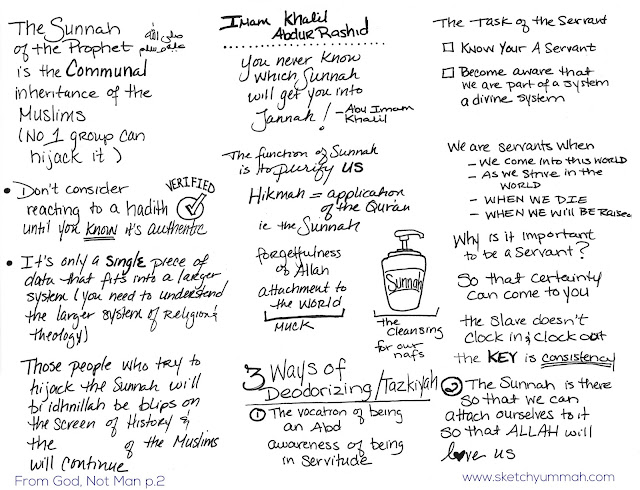 The Sunnah
of the Prophet ﷺ
is the Communal
inheritance of the
Muslims
(No 1 group can
hijack it)
• Don't consider
reacting to a hadith
until you know it's authentic
VERIFIED
• It's only a single piece of
data that fits into a larger
system (you need to understand
the larger system of Religion &
theology)
Those people who try to
hijack the Sunnah will
bi idhnillah be blips on
the screen of History &
the of the Muslims
will continue
From God, Not Man p.2
Imam Khalil
Abdur Rashid
You never know
which Sunnah
will get you into
Jannah! - Abu Imam
Khalil
The function of Sunnah
is to purify us
Hikmah = application
of the Qur'an
ie the Sunnah
forgetfulness
of Allah
attachment to
the World
MUCK
Sunnah
the
Cleansing
for our
nafs
3 Ways of
Deodorizing/Tazkiyah
① The vocation of being
an Abd
awareness of being
in Servitude
The Task of the Servant
Know Your A Servant
Become aware that
we are part of a system
a divine system
We are servants when
- We come into this WORLD
- As we strive in the
WORLD
- WHEN WE DIE
- WHEN WE WILL BE RAISED
Why is it important
to be a Servant?
So that certainty
can come to you
the slave doesn't
clock in & clock out
the KEY is consistency
② The Sunnah is there
so that we can
attach ourselves to it
so that ALLAH will
love us
www.sketchyummah.com